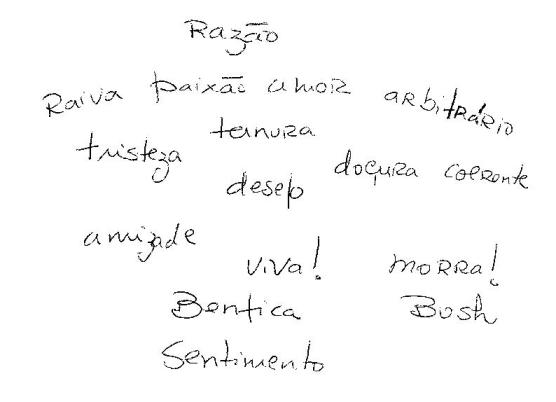 Razão
Raiva paixão amor arbitrário
tristeza ternura
desejo doçura coerente
amizade
viva! morra!
Bentica Bush
Sentimento